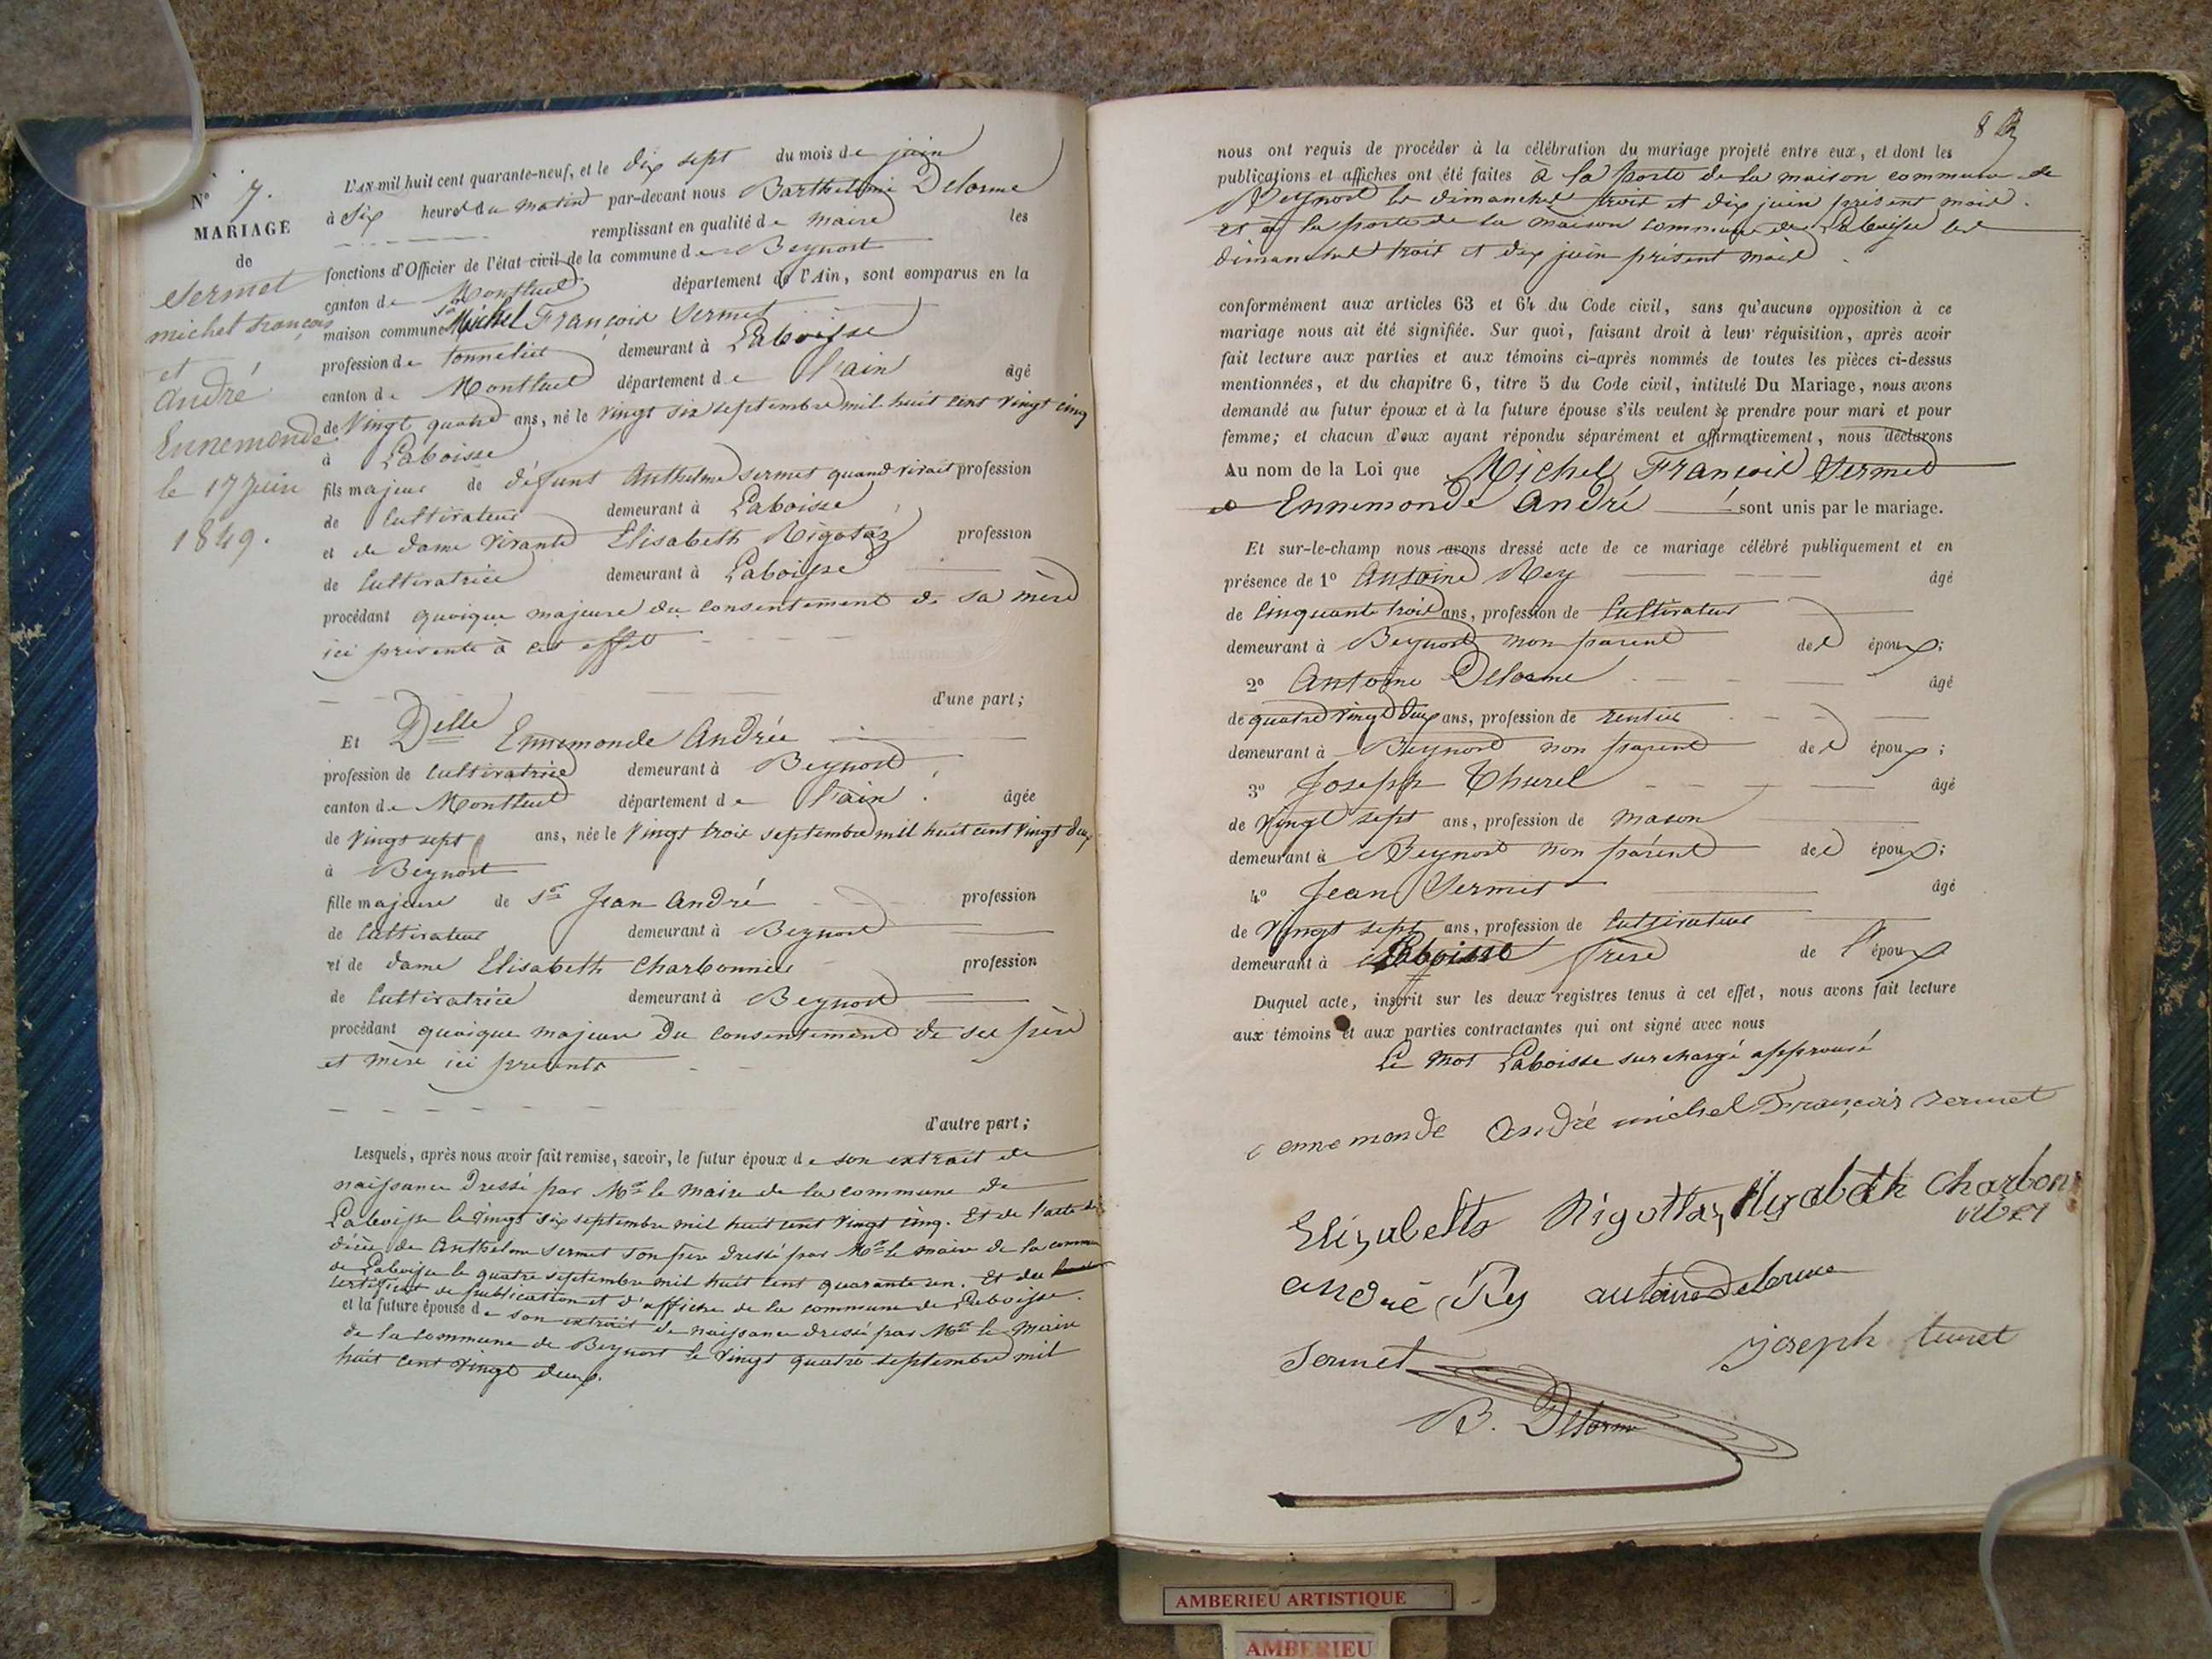 N° 7.
MARIAGE
de
Sermet
michel françois
et
andré
Ennemonde
le 17 juin
1849.
L'AN mil huit cent quarante-neuf, et le dix sept du mois de juin
à six heures du matin par-devant nous Barthelemi Delorme
remplissant en qualité de maire les
fonctions d'Officier de l'état civil de la commune de Beynost
canton de Montluel département de l'Ain, sont comparus en la
maison commune Sr Michel François Sermet
profession de tonnelier demeurant à Laboisse
canton de Montluel département de l'ain âgé
de vingt quatre ans, né le vingt six septembre mil huit cent vingt cinq
à Laboisse
fils majeur de défunt Anthelme Sermet quand vivait profession
de cultivateur demeurant à Laboisse
et de dame vivante Elisabeth Rigotaz profession
de cultivatrice demeurant à Laboisse
procédant quoique majeure du consentement de sa mère
ici présente à cet effet
d'une part;
Et Delle Ennemonde Andrée
profession de cultivatrice demeurant à Beynost
canton de Montluel département de l'ain. âgée
de vingt sept ans, née le vingt trois septembre mil huit cent vingt deux
à Beynost
fille majeure de Sr Jean André profession
de cultivateur demeurant à Beynost
et de dame Elisabeth Charbonnier profession
de cultivatrice demeurant à Beynost
procédant quoique majeure du consentement de ses père
et mère ici présents
d'autre part;
Lesquels, après nous avoir fait remise, savoir, le futur époux de son extrait de
naissance dressé par Mr le maire de la commune de
Laboisse le vingt six septembre mil huit cent vingt cinq. Et de l'acte de
décès de Anthelme Sermet son père dressé par Mr le maire de la commune
de Laboisse le quatre septembre mil huit cent quarante un. Et du
certificat de publication et d'affiche de la commune de Laboisse.
et la future épouse de son extrait de naissance dressé par Mr le maire
de la commune de Beynost le vingt quatre septembre mil
huit cent vingt deux.
8
nous ont requis de procéder à la célébration du mariage projeté entre eux, et dont les
publications et affiches ont été faites à la porte de la maison commune de
Beynost les dimanches trois et dix juin présent mois.
et à la porte de la maison commune de Laboisse les
dimanches trois et dix juin présent mois.
conformément aux articles 63 et 64 du Code civil, sans qu'aucune opposition à ce
mariage nous ait été signifiée. Sur quoi, faisant droit à leur réquisition, après avoir
fait lecture aux parties et aux témoins ci-après nommés de toutes les pièces ci-dessus
mentionnées, et du chapitre 6, titre 5 du Code civil, intitulé Du Mariage, nous avons
demandé au futur époux et à la future épouse s'ils veulent se prendre pour mari et pour
femme; et chacun d'eux ayant répondu séparément et affirmativement, nous déclarons
Au nom de la Loi que Michel François Sermet
et Ennemonde André sont unis par le mariage.
Et sur-le-champ nous avons dressé acte de ce mariage célébré publiquement et en
présence de 1° Antoine Rey âgé
de cinquante trois ans, profession de cultivateur
demeurant à Beynost non parent des époux;
2° Antoine Delorme âgé
de quatre vingt deux ans, profession de rentier
demeurant à Beynost non parent des époux;
3° Joseph Thurel âgé
de vingt sept ans, profession de maçon
demeurant à Beynost non parent des époux;
4° Jean Sermet âgé
de vingt sept ans, profession de cultivateur
demeurant à Laboisse frère de l'époux
Duquel acte, inscrit sur les deux registres tenus à cet effet, nous avons fait lecture
aux témoins et aux parties contractantes qui ont signé avec nous
Le mot Laboisse surchargé approuvé
ennemonde André michel François sermet
Elizabeth Rigottaz Elyzabeth Charbon
andré Rey antoine Delorme
Sermet joseph
B. Delorme
AMBERIEU ARTISTIQUE
AMBERIEU